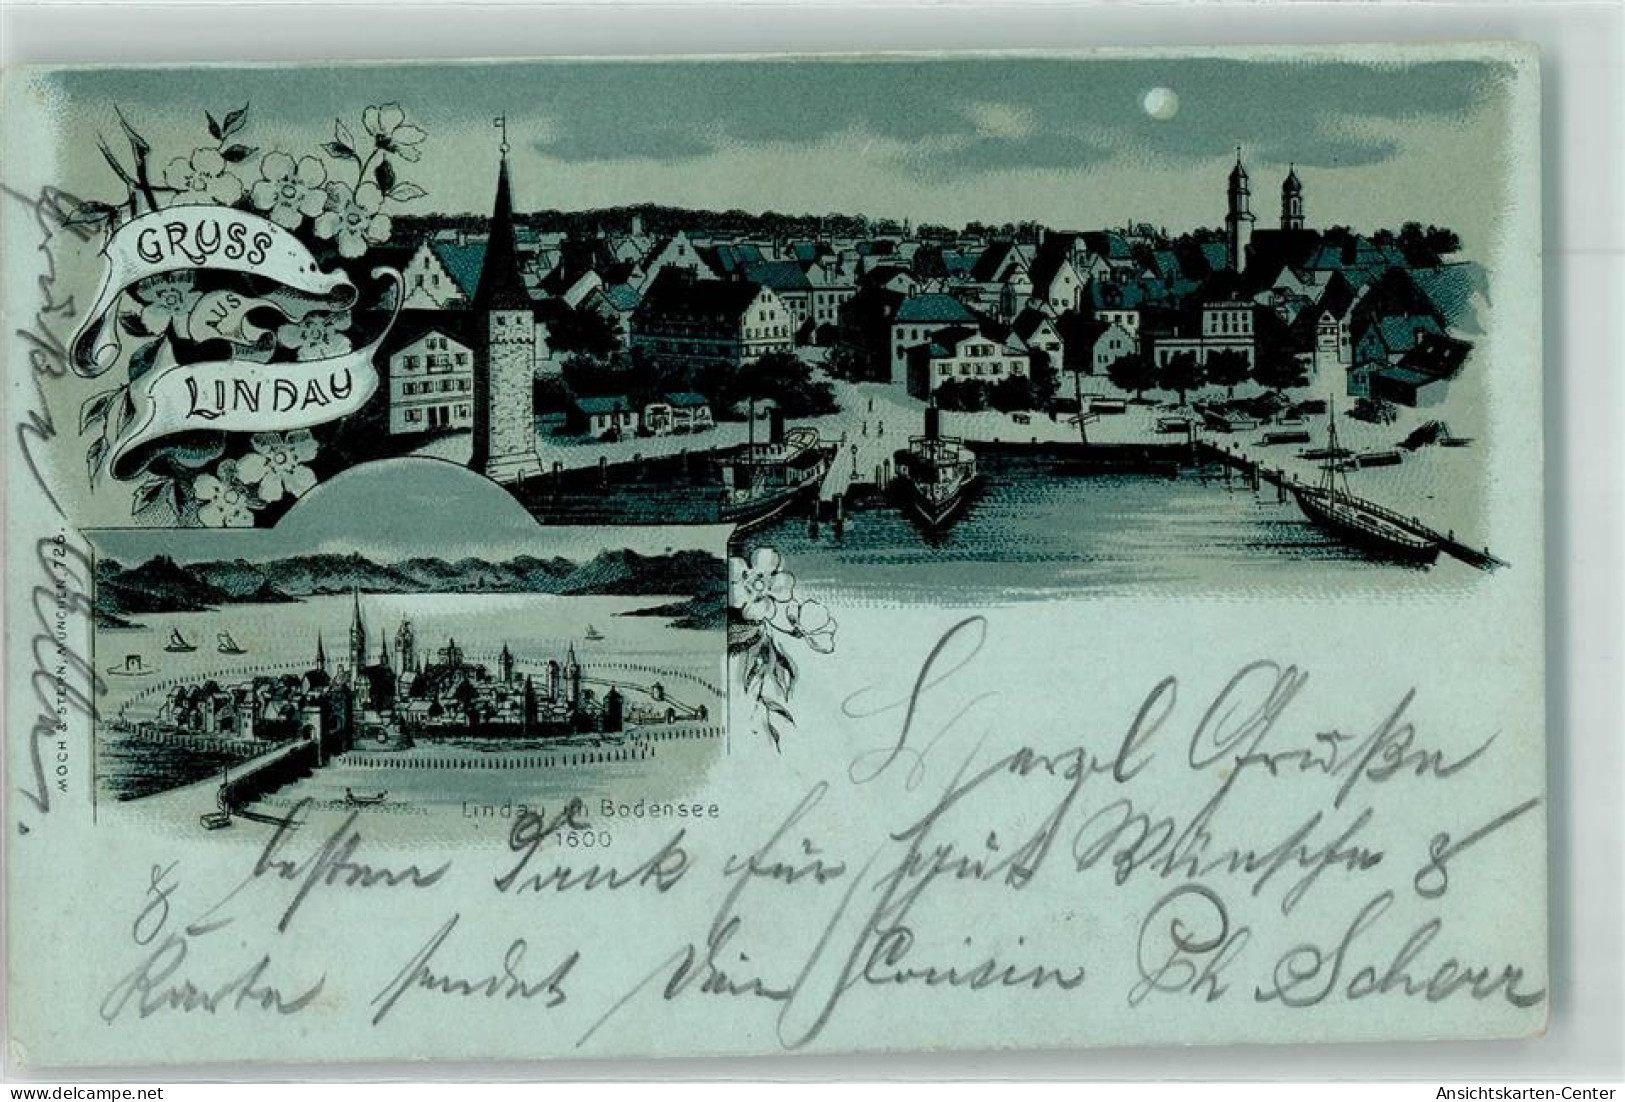 GRUSS
AUS
LINDAU
MOCH & STERN, MÜNCHEN 726.
Lindau im Bodensee
1600
Herzl Grüße
& besten Dank für Wünsche &
Karte sendet Dein Cousin Ph Scherr
Grüßen
Ansichtskarten-Center